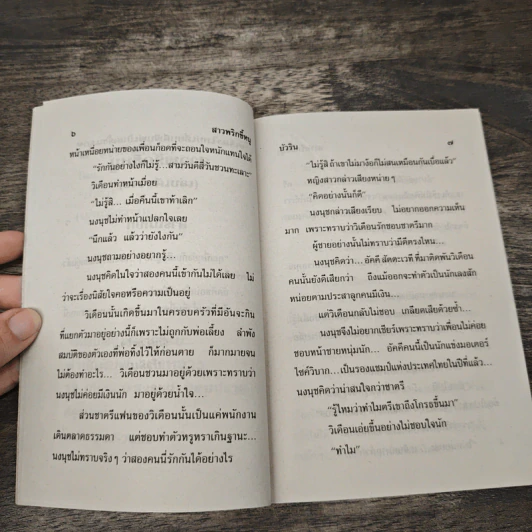 ๖ สาวพริกขี้หนู
หน้าเหนื่อยหน่ายของเพื่อนก็อดที่จะถอนใจหนักแทนใจได้
“รักกันอย่างไงก็ไม่รู้...สามวันดีสี่วันชวนทะเลาะ”
วิเตือนทำหน้าเมื่อย
“ไม่รู้สิ... เมื่อคืนนี้เขาท้าเลิก”
นงนุชไม่ทำหน้าแปลกใจเลย
“นึกแล้ว แล้วว่ายังไงกัน”
นงนุชถามอย่างอยากรู้...
นงนุชคิดในใจว่าสองคนนี้เข้ากันไม่ได้เลย ไม่
ว่าจะเรื่องนิสัยใจคอหรือความเป็นอยู่
วิเตือนนั้นเกิดขึ้นมาในครอบครัวที่มีอันจะกิน
ที่แยกตัวมาอยู่อย่างนี้ก็เพราะไม่ถูกกับพ่อเลี้ยง ลำพัง
สมบัติของตัวเองที่พ่อทิ้งไว้ให้ก่อนตาย ก็มากมายจน
ไม่ต้องทำอะไร... วิเตือนชวนมาอยู่ด้วยเพราะทราบว่า
นงนุชไม่ค่อยมีเงินนัก มาอยู่ด้วยน้ำใจ...
ส่วนชาตรีแฟนของวิเตือนนั้นเป็นแค่พนักงาน
เดินตลาดธรรมดา แต่ชอบทำตัวหรูหราเกินฐานะ...
นงนุชไม่ทราบจริงๆ ว่าสองคนนี้รักกันได้อย่างไร
บัวริน ๗
“ไม่รู้สิ ถ้าเขาไม่มาง้อก็ไม่สนเหมือนกันเบื่อแล้ว”
หญิงสาวกล่าวเสียงหน่ายๆ
“คิดอย่างนั้นก็ดี”
นงนุชกล่าวเสียงเรียบ ไม่อยากออกความเห็น
มาก เพราะทราบว่าวิเตือนรักชอบชาตรีมาก
ผู้ชายอย่างนั้นไม่ทราบว่ามีดีตรงไหน...
นงนุชคิดว่า... อัคคี สัตตะเวที ที่มาติดพันวิเตือน
คนนั้นยังดีเสียกว่า ถึงแม้ออกจะทำตัวเป็นนักเลงสัก
หน่อยตามประสาลูกคนมีเงิน...
แต่วิเตือนกลับไม่ชอบ เกลียดเสียด้วยซ้ำ...
นงนุชจึงไม่อยากเชียร์เพราะทราบว่าเพื่อนไม่ค่อย
ชอบหน้าชายหนุ่มนัก... อัคคีคนนี้เป็นนักแข่งมอเตอร์
ไซค์วิบาก...เป็นรองแชมป์แห่งประเทศไทยในปีที่แล้ว...
นงนุชคิดว่าน่าสนใจกว่าชาตรี
“รู้ไหมว่าทำไมตรีเขาถึงโกรธขึ้นมา”
วิเตือนเอ่ยขึ้นอย่างไม่ชอบใจนัก
“ทำไม”